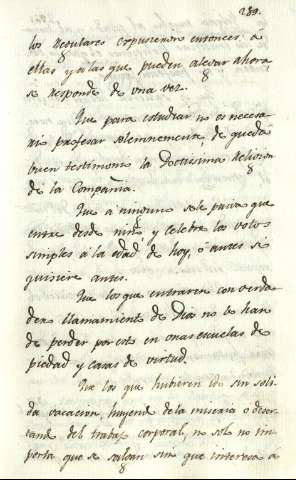 239.
los Regulares expusieron entonces á
ellas y á las que pueden alegar ahora,
se responde de una vez.
Que para estudiar no es necesa-
rio profesar solemnemente, de que da
buen testimonio la Doctissima Religion
de la Compañia.
Que á ninguno se le priva que
entre desde niño, y celebre los votos
simples á la edad de hoy, ó antes si
quisiere antes.
Que los que entraren con verda-
dero llamamiento de Dios no se han
de perder por esto en unas escuelas de
piedad y casas de virtud.
Que los que hubieren ido sin soli-
da vocacion, huyendo de la miseria ó deser-
tando del trabajo corporal, no solo no im-
porta que se salgan sin que interesa á